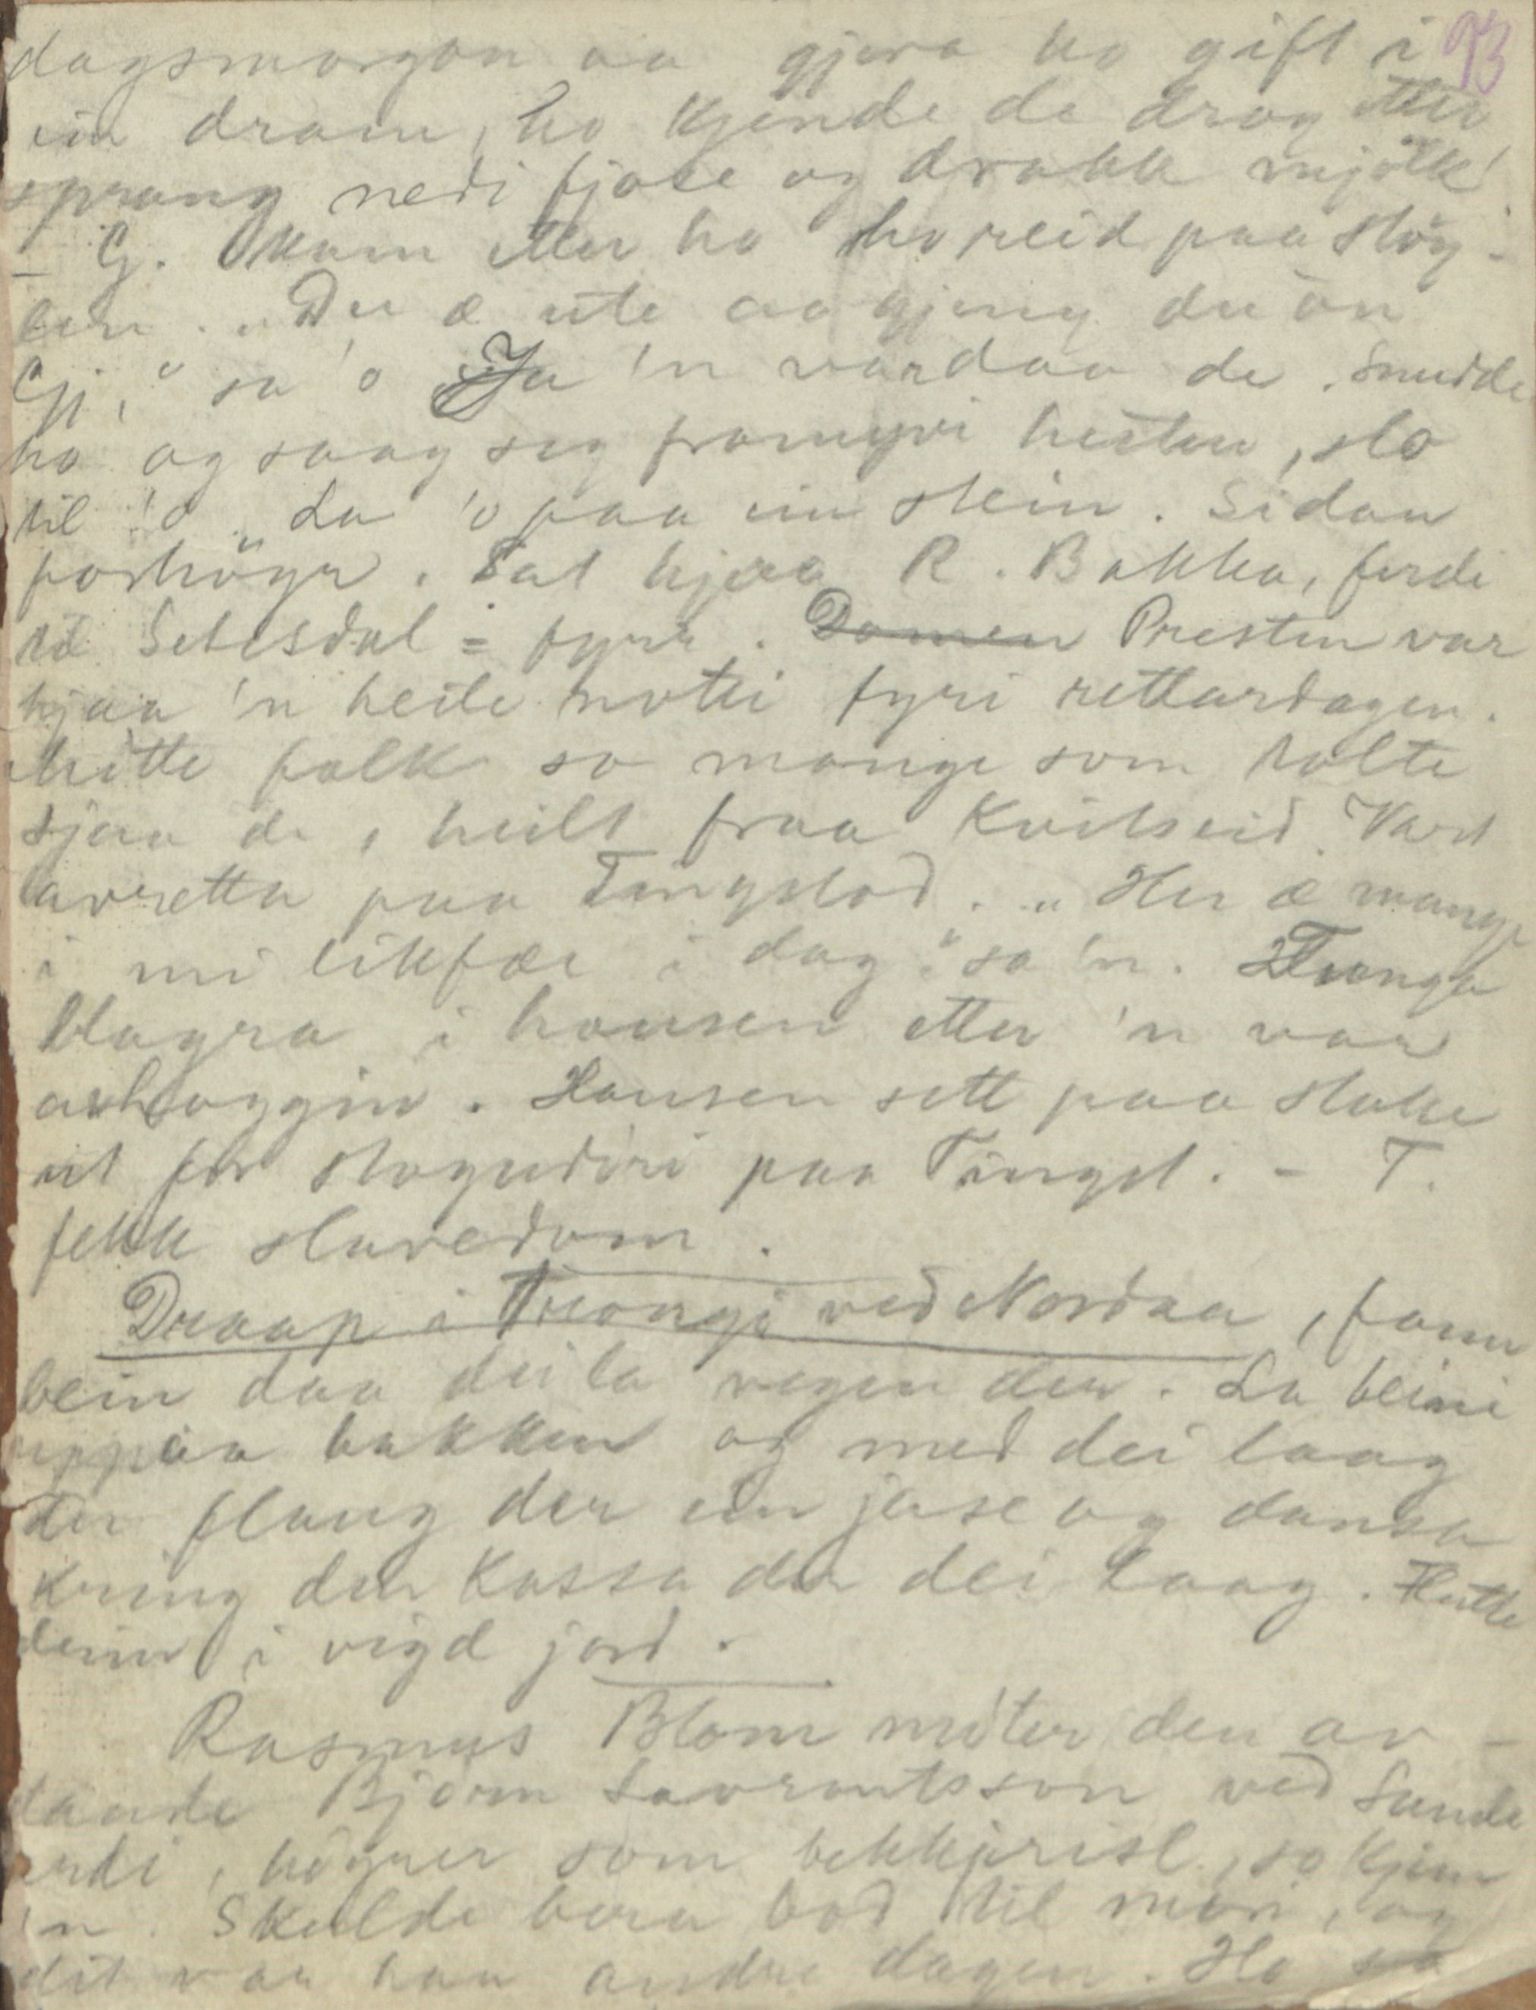 dagsmorgon aa gjeva ho gift i 93
ein dram, ho kjende de drog etter
sprang nedi fjose og drakk mjölk
– G. kom etter ho ho reid paa stöy-
len. „Du æ ute aa gjeng du òn
Gj," sa 'o Ja 'n vardaa de. Snudde
ho og saag seg framyvi hesten, slo
til 'o „La 'o paa ein stein. Sidan
forhöyr. Sat hjaa R. Bakka, ferdi
til Setesdal = fyrr. Domen Presten var
hjaa 'n heile notti fyri rettardagen.
folk so mange som tolte
sjaa de, heilt fraa Kvitseid. Vart
avretta paa Tingstod. „Her æ mange
i mi likfær i dag" sa 'n. Tunga
blagra i hausen etter 'n var
avhoggin. Hausen sett paa stake
ut for stogudöri paa Tingst. – T.
fekk slavedom.
Draap i Treongji ved Nordaa, fann
bein daa dei la vegen der. La beini
uppaa bakken og med dei laag
der flaug der ein jase og dansa
kring den kassa der dei laag. Flutte
deim i vigd jord.
Rasmus Blom möter den av-
Björn Lavrantsson ved Sunde
, högrer som bekkjerisl, so kjem
'n. Skulde bera bod til mori, og
dit var han andre dagen. Ho sa